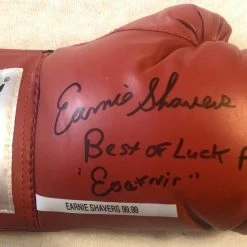 Earnie Shavers
Best of Luck
EARNIE SHAVERS 99.99